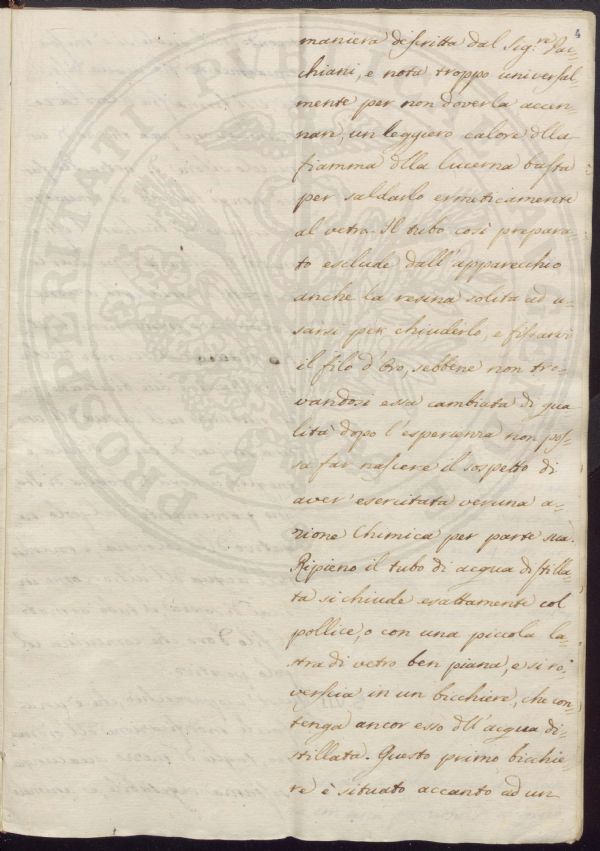 4
maniera descritta dal Sig.re Pac-
chiani, e nota troppo universal-
mente per non doverla accen-
nare, un leggiero calore dlla
fiamma dlla lucerna basta
per saldarlo ermeticamente
al vetro. Il tubo così prepara-
to esclude dall'apparecchio
anche la resina solita ad u-
sarsi per chiuderlo, e fissarvi
il filo d'Oro, sebbene non tro-
vandosi essa cambiata di qua
lità dopo l'esperienza non pos-
sa far nascere il sospetto di
aver' esercitata veruna a-
zione Chimica per parte sua.
Ripieno il tubo di acqua distilla-
ta si chiude esattamente col
pollice, o con una piccola la-
stra di vetro ben piana, e si ro-
vescia in un bicchiere, che con-
tenga ancor esso dll'acqua di-
stillata. Questo primo bicchie-
re è situato accanto ad un
PROSPERITATI PUBLICAE AUGENDAE